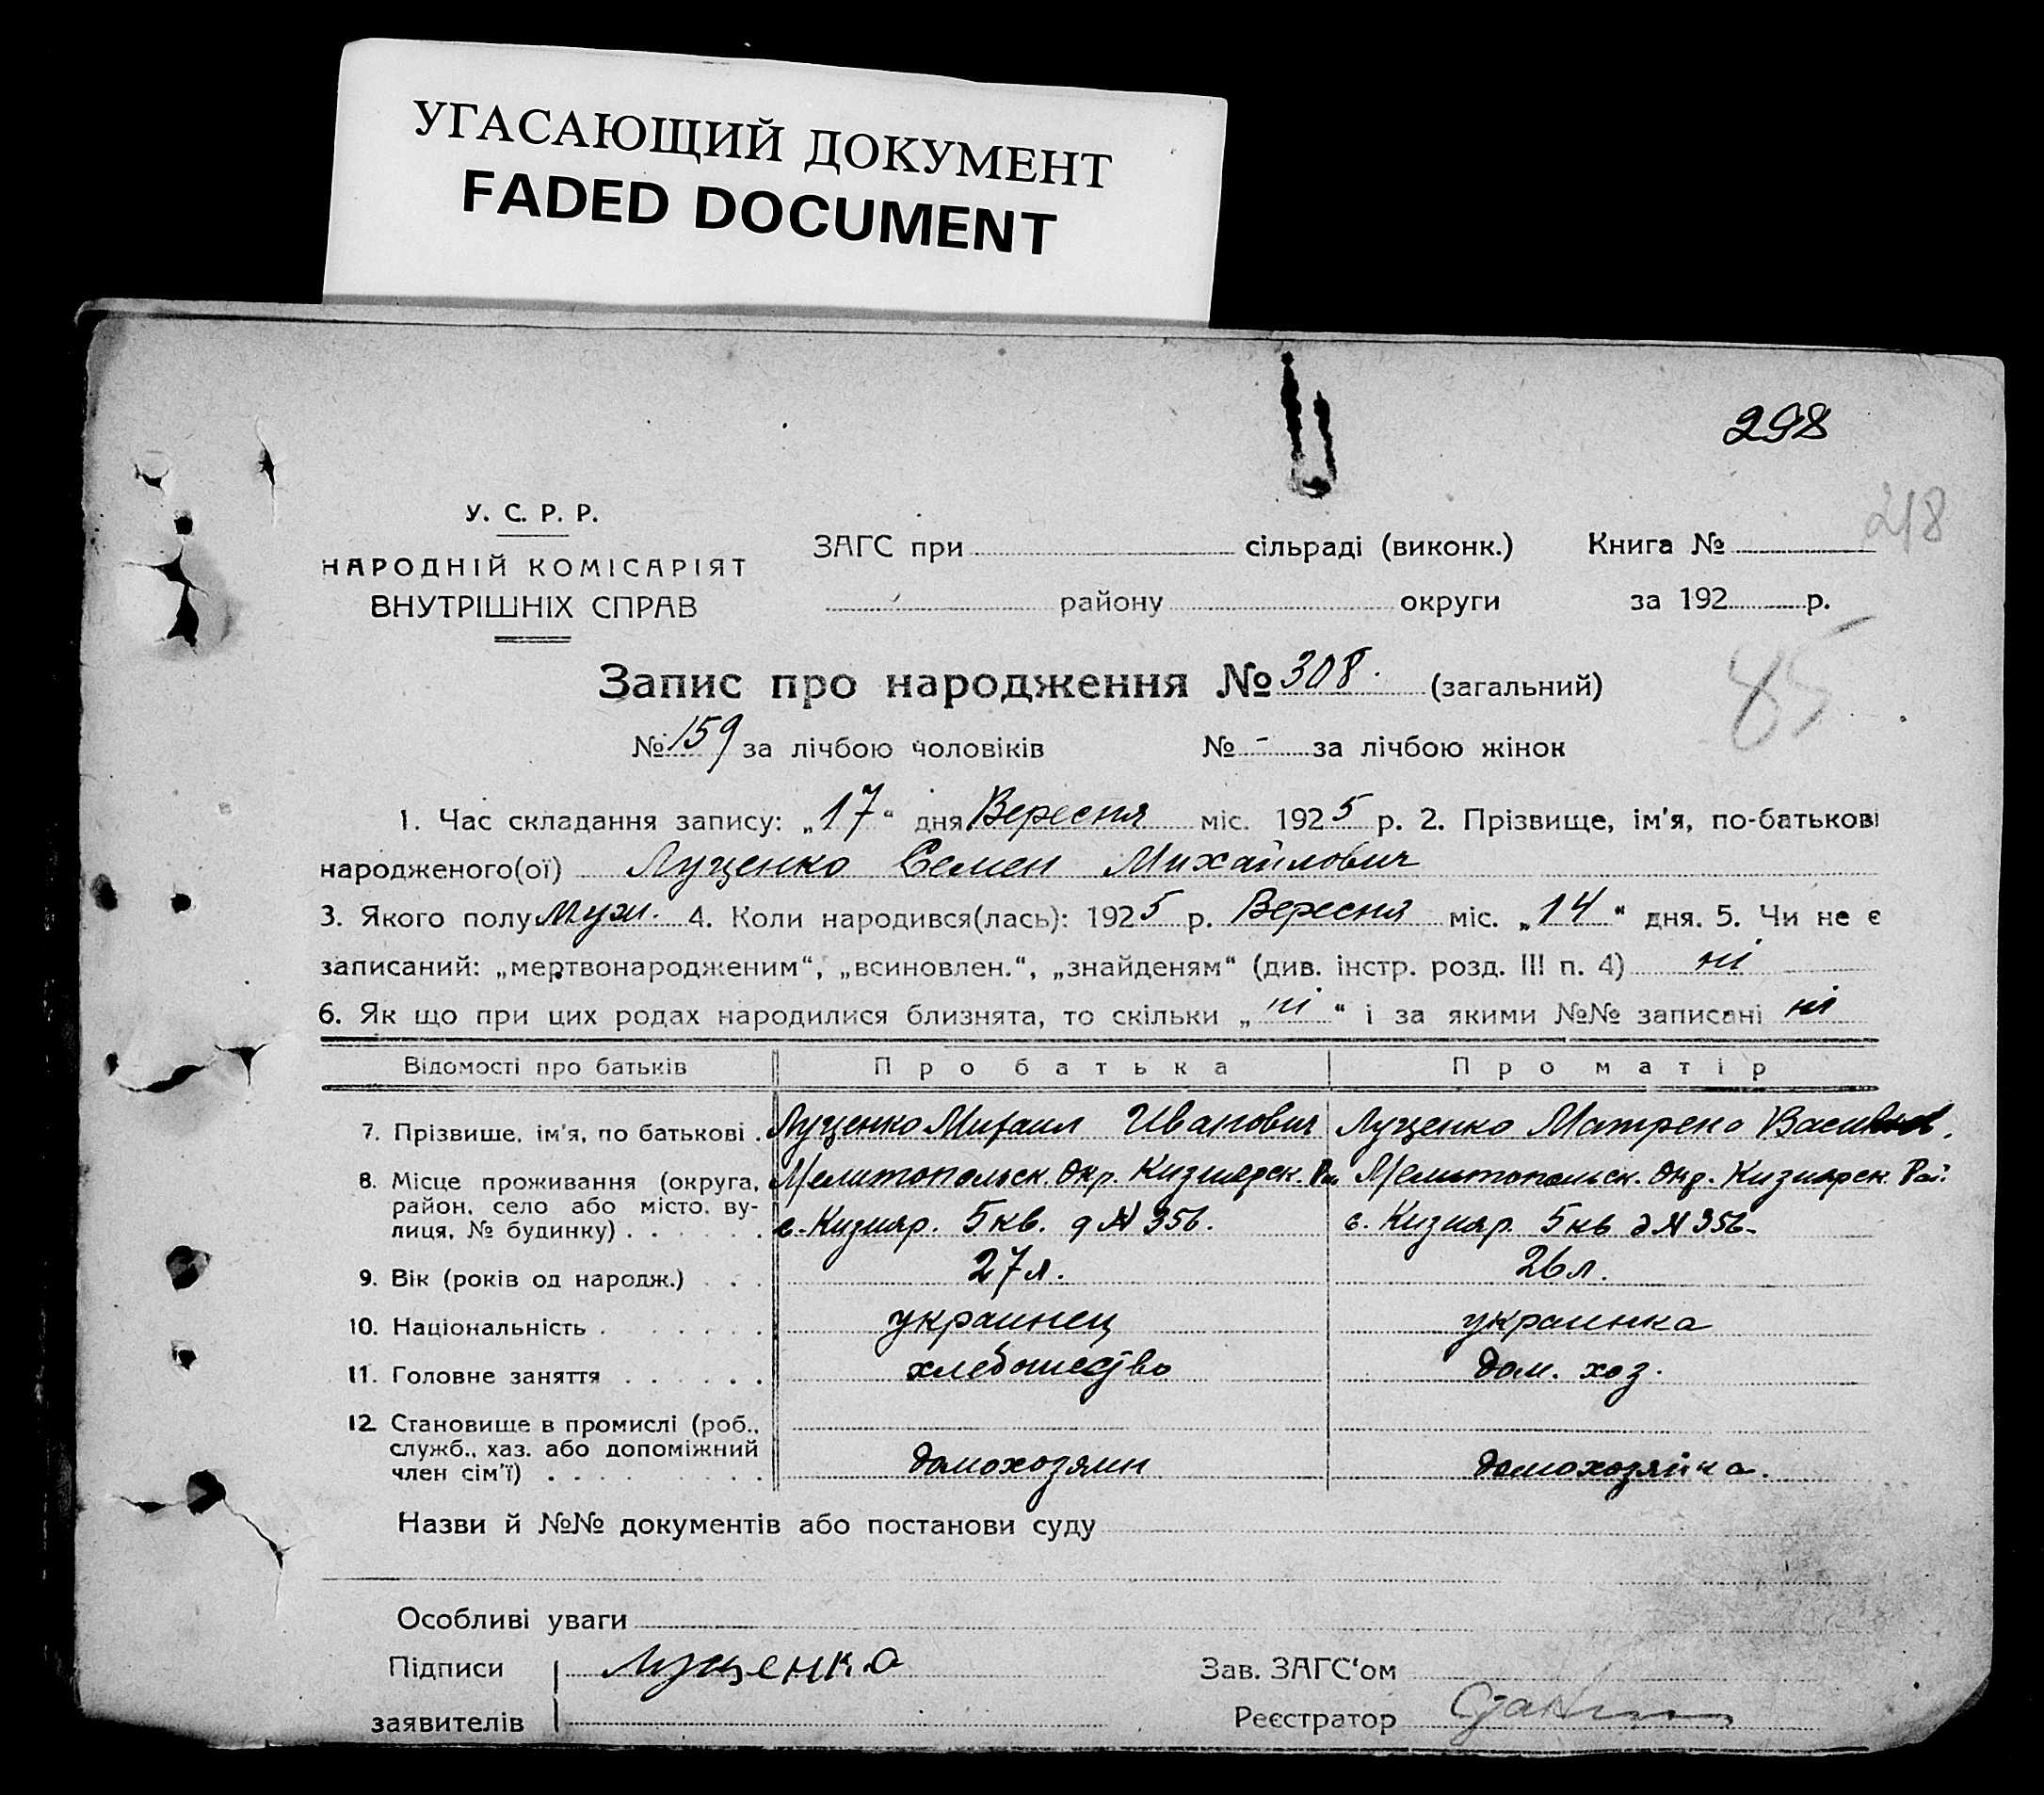 УГАСАЮЩИЙ ДОКУМЕНТ
FADED DOCUMENT
298
218
У. С. Р. Р.
НАРОДНІЙ КОМІСАРІЯТ
ВНУТРІШНІХ СПРАВ
ЗАГС при сільраді (виконк.) Книга №
району округи за 192 р.
Запис про народження № 308. (загальний)
85
№ 159 за лічбою чоловіків № - за лічбою жінок
1. Час складання запису: „17“ дня Вересня міс. 1925 р. 2. Прізвище, ім'я, по-батькові
народженого(ої) Луценко Семен Михайлович
3. Якого полу Муж. 4. Коли народився(лась): 1925 р. Вересня міс. „14“ дня. 5. Чи не є
записаний: „мертвонародженим“, „всиновлен.“, „знайденям“ (див. інстр. розд. III п. 4) ні
6. Як що при цих родах народилися близнята, то скільки „ні“ і за якими №№ записані ні
Відомості про батьків Про батька Про матір
7. Прізвише, ім'я, по батькові . Луценко Михаил Иванович Луценко Матрена Васильев.
8. Місце проживання (округа, Мелитопольск. Окр. Кизиярск. Ра. Мелитопольск. Окр. Кизиярск. Рай.
район, село або місто, ву-
лиця, № будинку) . . . . . . с. Кизияр. 5 кв. д № 356. с. Кизияр. 5 кв д № 356.
9. Вік (років од народж.) . . . 27 л. 26 л.
10. Національність . . . . . . . украинец украинка
11. Головне заняття . . . . . . хлебопашество дом. хоз.
12. Становище в промислі (роб.,
служб., хаз. або допоміжний
член сім'ї) . . . . . . . . . домохозяин домохозяйка.
Назви й №№ документів або постанови суду
Особливі уваги
Підписи Луценко Зав. ЗАГС‘ом
заявителів Реєстратор